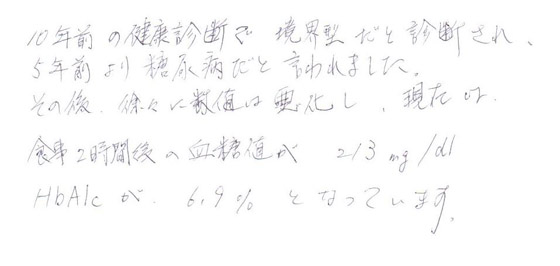 10年前の健康診断で境界型だと診断され、
5年前より糖尿病だと言われました。
その後、徐々に数値は悪化し、現在は、
食事2時間後の血糖値が 213 mg/dl
HbA1c が、6.9% となっています。